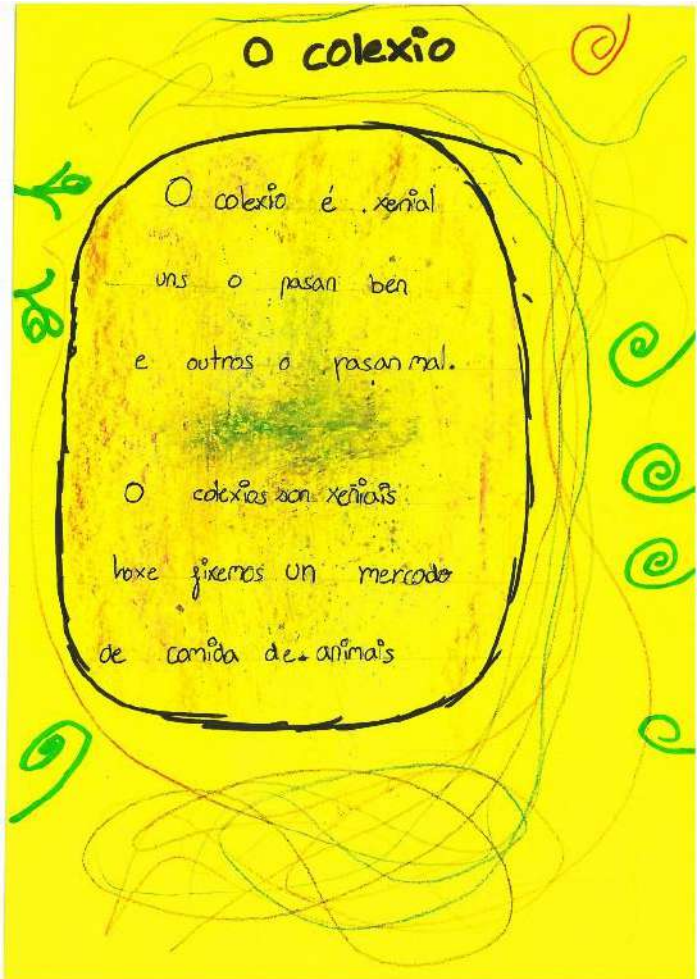 O colexio
O colexio é xenial
uns o pasan ben
e outros o pasan mal.
O colexios son xeniais
hoxe fixemos un mercado
de comida de animais